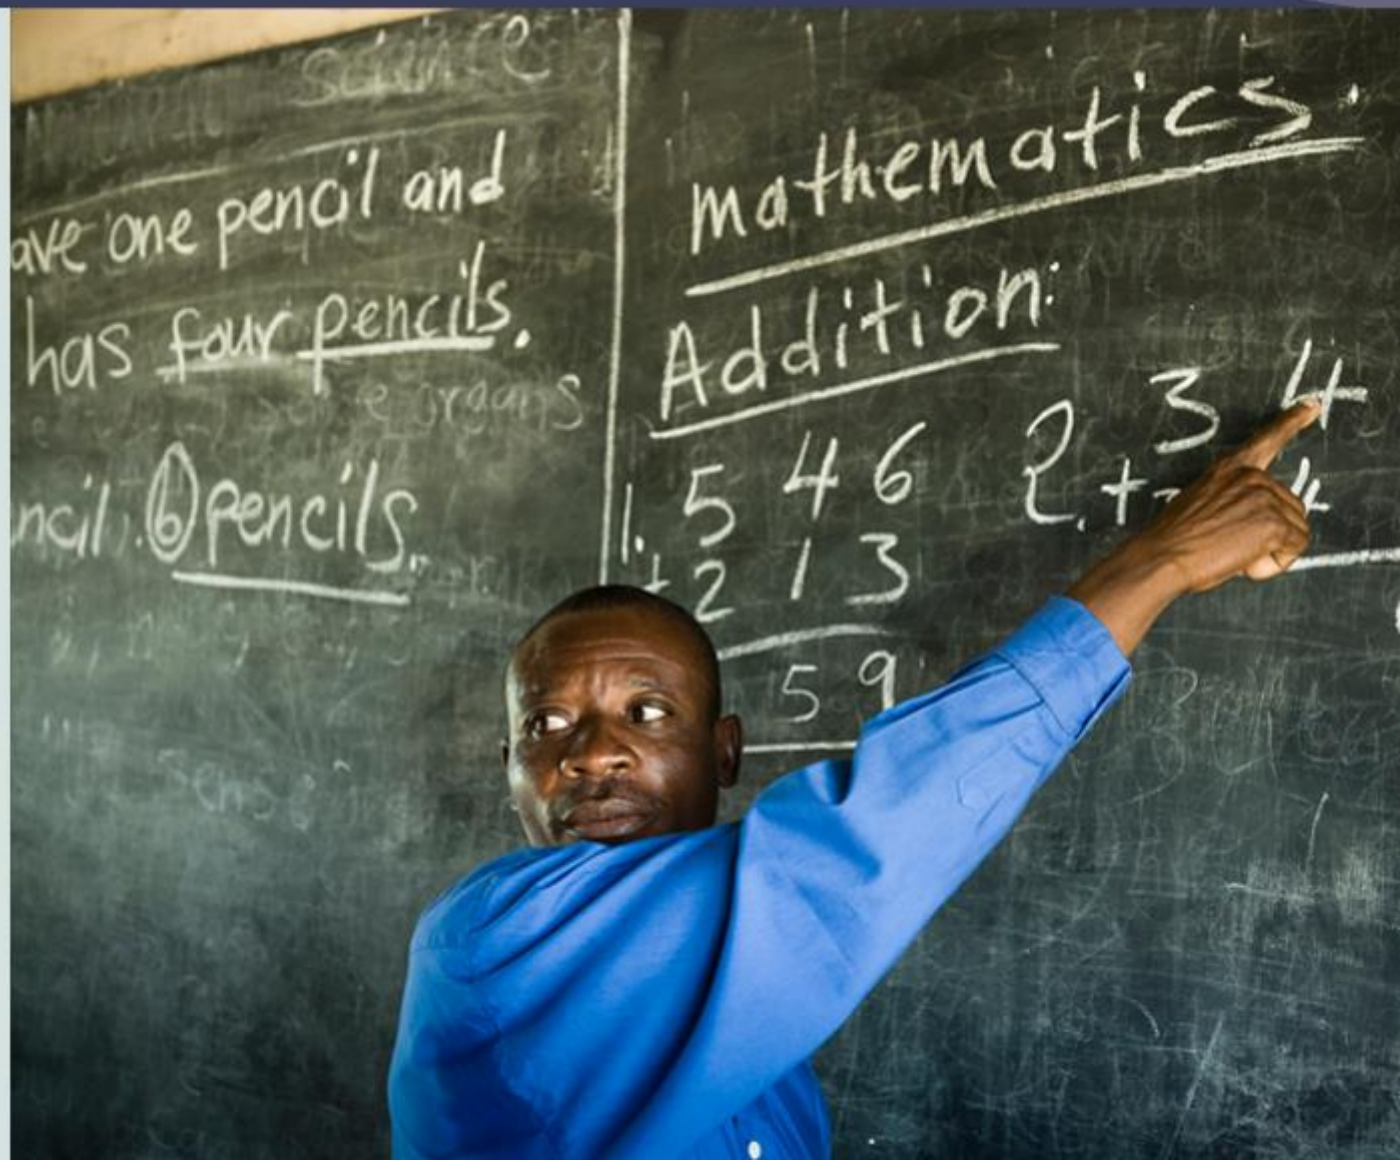 science
ave one pencil and
has four pencils.
e organs
ncil. 6 pencils.
mathematics.
Addition:
1. 5 4 6
+ 2 1 3
5 9
2. 3 4
+ 4